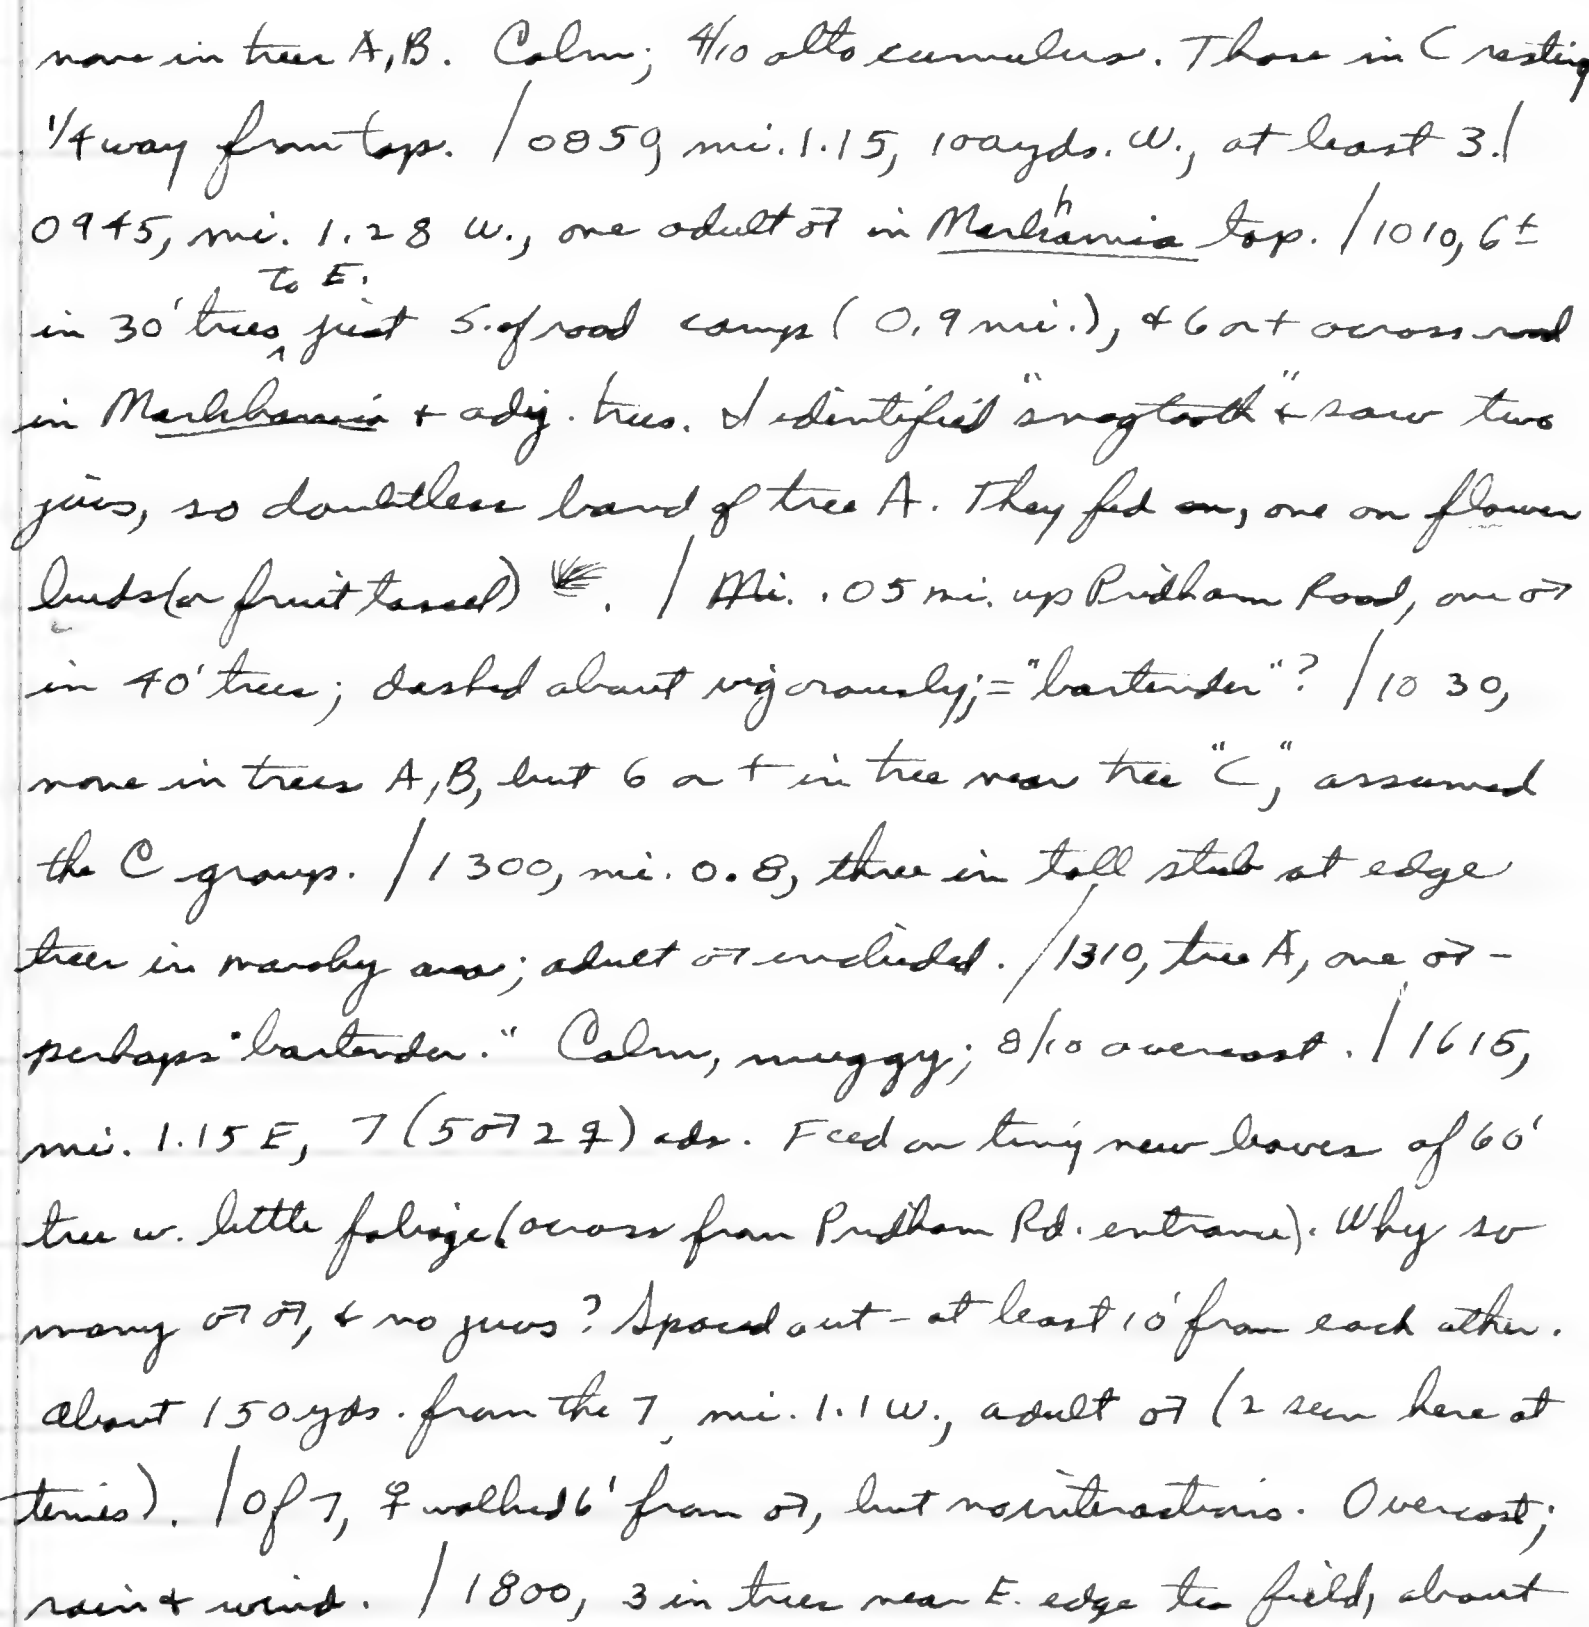 none in trees A, B. Calm; 4/10 alto cumulus. Those in C resting
1/4 way from top. / 0859, mi. 1.15, 100 yds. W., at least 3. /
0945, mi. 1.28 W., one adult ♂ in Markhamia top. / 1010, 6±
in 30' trees to E. just S. of road camp (0.9 mi.), + 6 or + across road
in Markhamia + adj. trees. I identified "snagtooth" + saw two
juvs, so doubtless band of tree A. They fed on, one on flower
buds (or fruit tassel). / Mi. .05 mi. up Pridham Road, one ♂
in 40' trees; dashed about vigorously; = "bartender"? / 1030,
none in trees A, B, but 6 or + in tree near tree "C", assumed
the C group. / 1300, mi. 0.8, three in tall stub at edge
trees in marshy area; adult ♂ included. / 1310, tree A, one ♂ -
perhaps "bartender." Calm, muggy; 8/10 overcast. / 1615,
mi. 1.15 E, 7 (5♂ 2♀) ads. Feed on tiny new leaves of 60'
tree w. little foliage (across from Pridham Rd. entrance). Why so
many ♂♂, + no juvs? Spaced out - at least 10' from each other.
About 150 yds. from the 7, mi. 1.1 W., adult ♂ (2 seen here at
times). / Of 7, ♀ walked 6' from ♂, but no interactions. Overcast;
rain + wind. / 1800, 3 in trees near E. edge tea field, about